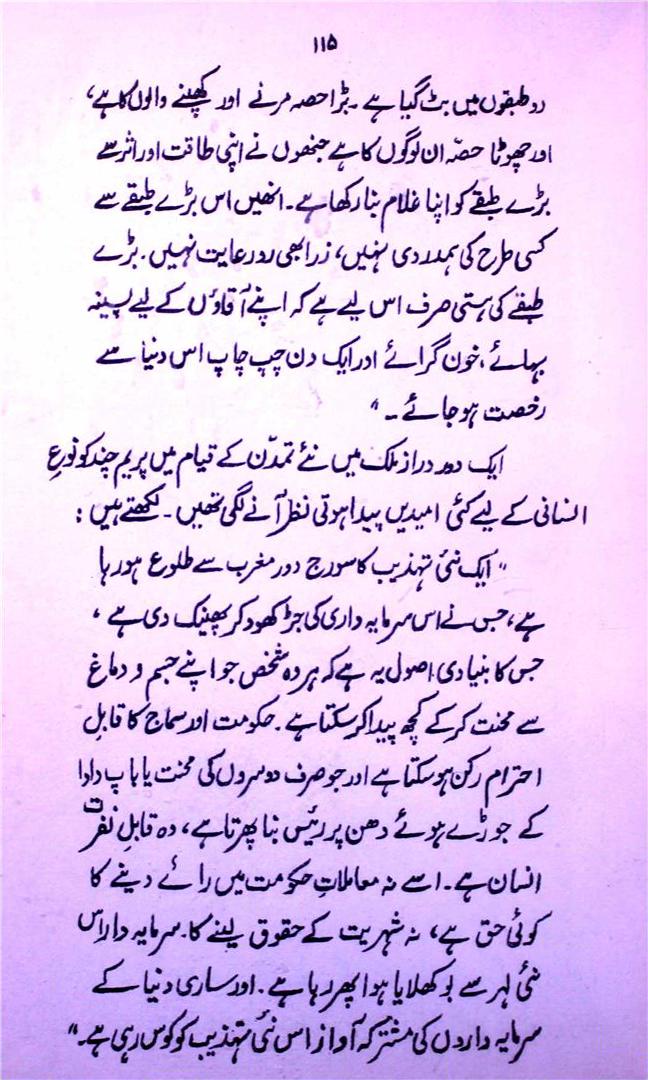 ۱۱۵
دو طبقوں میں بٹ گیا ہے ۔ بڑا حصہ مرنے اور کھپنے والوں کا ہے،
اور چھوٹا حصّہ ان لوگوں کا ہے جنھوں نے اپنی طاقت اور اثر سے
بڑے طبقے کو اپنا غلام بنا رکھا ہے۔ انھیں اس بڑے طبقے سے
کسی طرح کی ہمدردی نہیں، ذرا بھی رو رعایت نہیں. بڑے
طبقے کی ہستی صرف اس لیے ہے کہ اپنے آقاؤں کے لیے پسینہ
بہائے، خون گرائے اور ایک دن چپ چاپ اس دنیا سے
رخصت ہو جائے ۔ "
ایک دور دراز ملک میں نئے تمدّن کے قیام میں پریم چند کو نوعِ
انسانی کے لیے کئی امیدیں پیدا ہوتی نظر آنے لگی تھیں ۔ لکھتے ہیں :
" ایک نئی تہذیب کا سورج دور مغرب سے طلوع ہو رہا
ہے، جس نے اس سرمایہ داری کی جڑ کھود کر پھینک دی ہے ،
جس کا بنیادی اصول یہ ہے کہ ہر وہ شخص جو اپنے جسم و دماغ
سے محنت کر کے کچھ پیدا کر سکتا ہے ۔ حکومت اور سماج کا قابلِ
احترام رکن ہو سکتا ہے اور جو صرف دوسروں کی محنت یا باپ دادا
کے جوڑے ہوئے دھن پر رئیس بنا پھرتا ہے، وہ قابلِ نفرت
انسان ہے ۔ اسے نہ معاملاتِ حکومت میں رائے دینے کا
کوئی حق ہے، نہ شہریت کے حقوق لینے کا۔ سرمایہ دار اس
نئی لہر سے بوکھلایا ہوا پھر رہا ہے ۔ اور ساری دنیا کے
سرمایہ داروں کی مشترکہ آواز اس نئی تہذیب کو کوس رہی ہے ۔ "